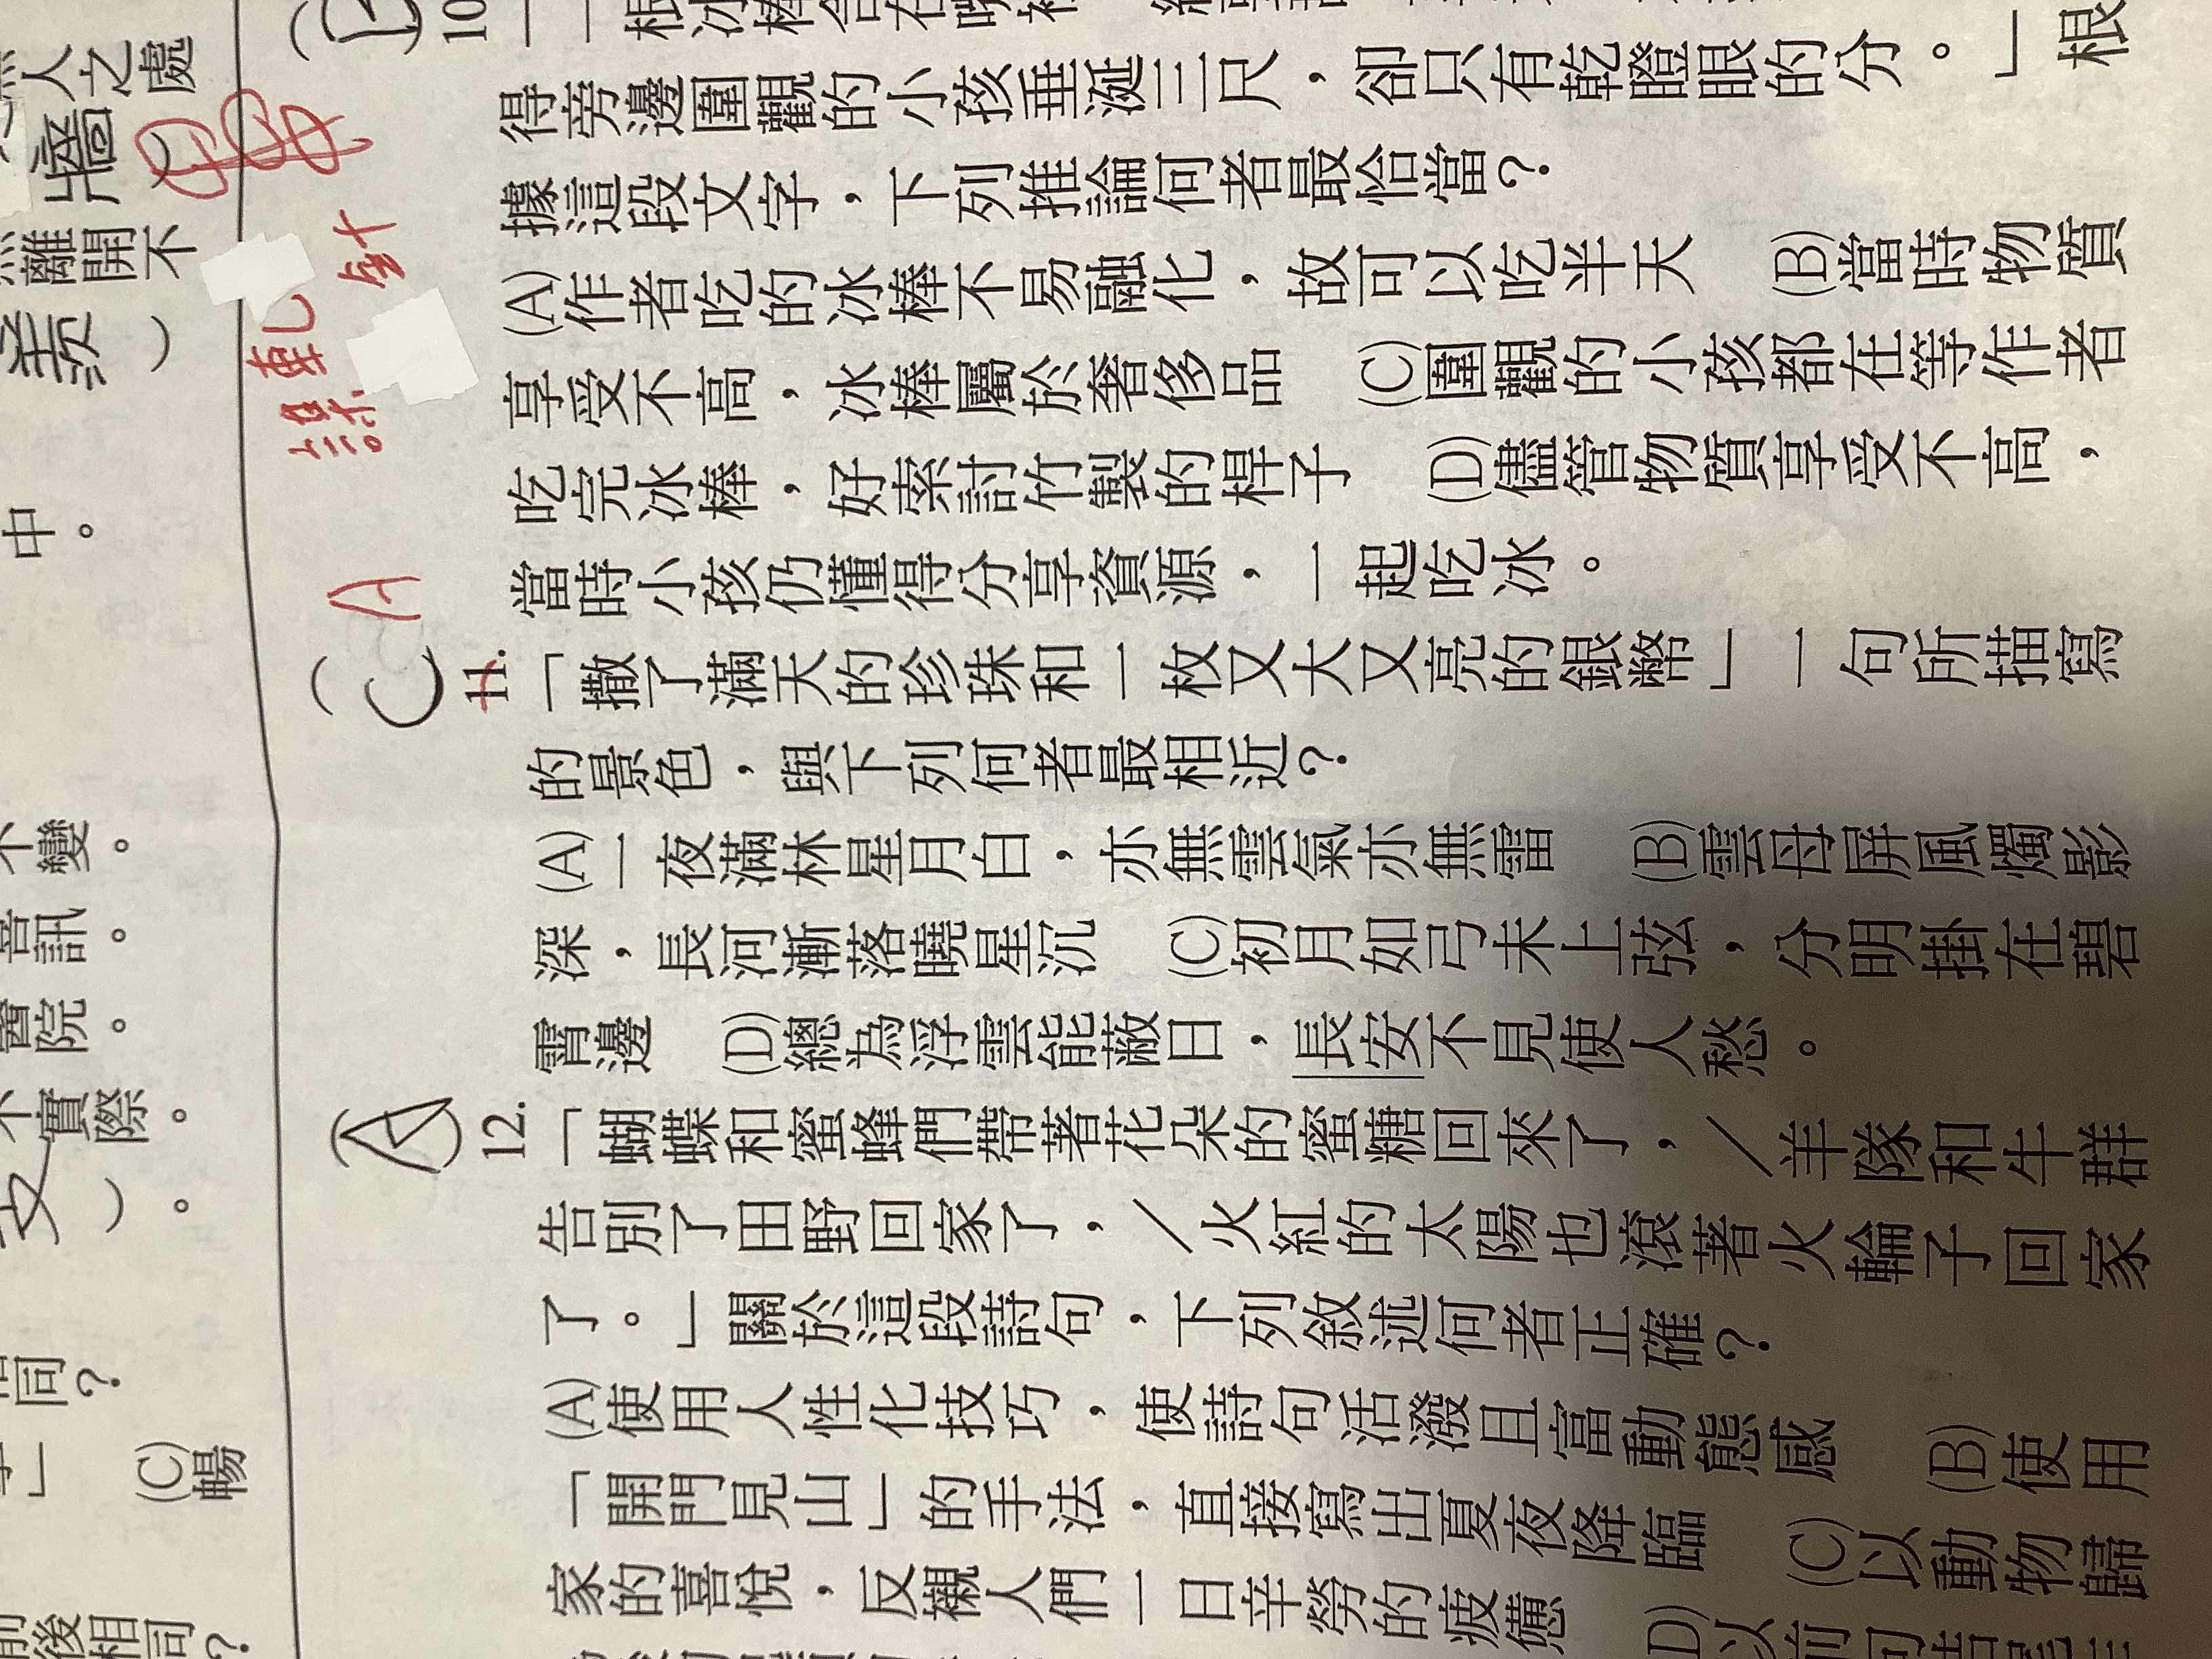 無人之處
牆
離開不
羨
中。
不變。
喜訊。
醫院。
不實際。
支
相同？
(C)暢
前後相同？
課
軋
針
10
一根冰棒含在嘴裡
得旁邊圍觀的小孩垂涎三尺，卻只有乾瞪眼的分。」根
據這段文字，下列推論何者最恰當？
(A)作者吃的冰棒不易融化，故可以吃半天 (B)當時物質
享受不高，冰棒屬於奢侈品 (C)圍觀的小孩都在等作者
吃完冰棒，好索討竹製的桿子 (D)儘管物質享受不高，
當時小孩仍懂得分享資源，一起吃冰。
(C) A
11.「撒了滿天的珍珠和一枚又大又亮的銀幣」一句所描寫
的景色，與下列何者最相近？
(A)一夜滿林星月白，亦無雲氣亦無雷 (B)雲母屏風燭影
深，長河漸落曉星沉 (C)初月如弓未上弦，分明掛在碧
霄邊 (D)總為浮雲能蔽日，長安不見使人愁。
(A)
12.「蝴蝶和蜜蜂們帶著花朵的蜜糖回來了，／羊隊和牛群
告別了田野回家了，／火紅的太陽也滾著火輪子回家
了。」關於這段詩句，下列敘述何者正確？
(A)使用人性化技巧，使詩句活潑且富動態感 (B)使用
「開門見山」的手法，直接寫出夏夜降臨 (C)以動物歸
家的喜悅，反襯人們一日辛勞的疲憊 (D)以前句